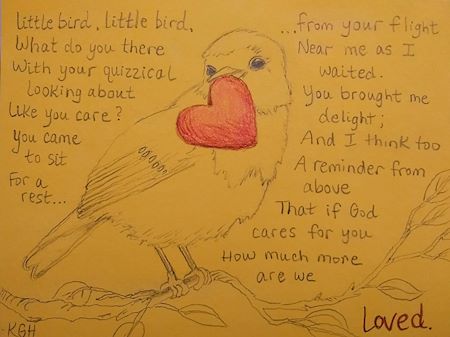 Little bird, Little bird,
What do you there
With your quizzical
looking about
Like you care?
You came
to sit
For a
rest...
...from your flight
Near me as I
waited.
You brought me
delight;
And I think too
A reminder from
above
That if God
cares for you
How much more
are we
Loved.
-KGH